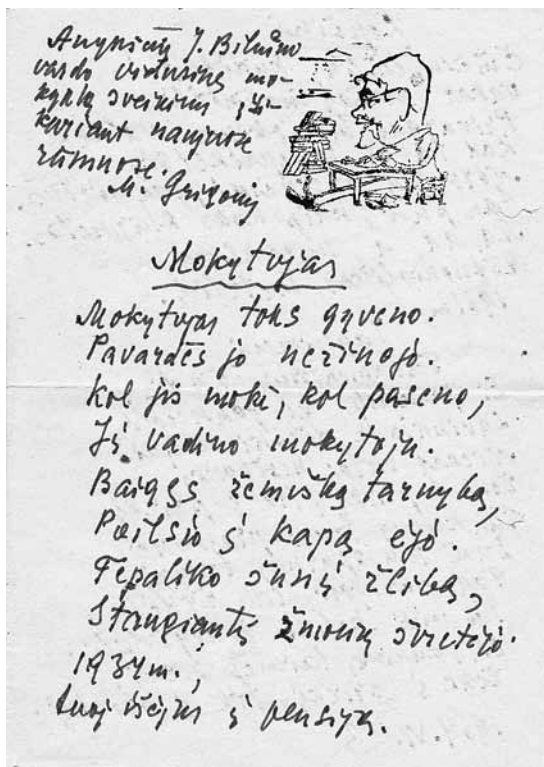 Anykščių J. Biliūno
vardo vidurinę mo-
kyklą sveikinu įsi-
kuriant naujuose
rūmuose.
M. Grigonis
Mokytojas
Mokytojas toks gyveno.
Pavardės jo nežinojo.
Kol jis mokė, kol paseno,
Jį vadino mokytoju.
Baigęs žemišką tarnybą,
Poilsio į kapą ėjo.
Tepaliko šunį žlibą,
Staugiantį žmonių švietėjo.
1934 m.,
tuoj išėjus į pensiją.